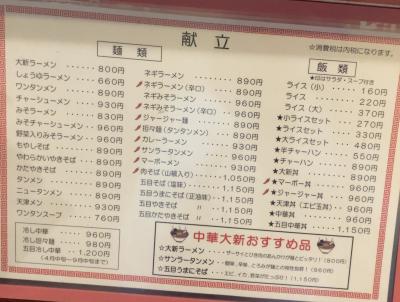 献立
☆消費税は内税になります。
麺類
大新ラーメン ・・・・・・ 800円
しょうゆラーメン ・・・・ 660円
ワンタンメン ・・・・・・ 890円
チャーシューメン ・・・・ 930円
みそラーメン ・・・・・・ 830円
みそチャーシューメン ・・・ 960円
野菜入りみそラーメン ・・・ 960円
もやしそば ・・・・・・ 890円
やわらかいやきそば ・・・ 890円
かたやきそば ・・・・・・ 890円
タンメン ・・・・・・ 890円
ニュータンメン ・・・・・ 890円
天津メン ・・・・・・ 930円
ワンタンスープ ・・・・・ 760円
冷し中華 ・・・・・ 960円
冷し担々麺 ・・・・・ 980円
五目冷し中華 ・・・・ 1,200円
(4月中旬〜9月中旬まで)
ネギラーメン ・・・・・・ 890円
ネギラーメン(辛口) ・・・ 890円
ネギみそラーメン ・・・・ 960円
ネギみそラーメン(辛口) ・・ 960円
ジャージャー麺 ・・・・・ 890円
担々麺(タンタンメン) ・・・ 890円
カレーラーメン ・・・・・ 930円
サンラータンメン ・・・・ 960円
マーボーメン ・・・・・・ 960円
肉そば(山椒入り) ・・・・ 1,050円
五目そば(塩味) ・・・・ 1,150円
五目うまにそば(正油味) ・・ 1,150円
五目やきそば 〃 ・・ 1,150円
五目かたやきそば 〃 ・・ 1,150円
飯類
★印はサラダ・スープ付き
ライス(小) ・・・・・ 160円
ライス ・・・・・・ 220円
ライス(大) ・・・・・ 370円
★小ライスセット ・・・ 270円
★ライスセット ・・・・ 330円
★大ライスセット ・・・ 480円
★半チャーハン ・・・・ 550円
★チャーハン ・・・・・ 890円
★大新丼 ・・・・・・ 890円
★マーボー丼 ・・・・・ 960円
★ジャージャー丼 ・・・ 960円
★天津丼(エビ玉丼) ・・ 960円
★中華丼 ・・・・・・ 960円
★五目中華丼 ・・・・ 1,150円
中華大新おすすめ品
☆大新ラーメン・・・・・ ザーサイとひき肉のあんかけが麺とピッタリ!(800円)
☆サンラータンメン・・・・ 酸味、辛味、とろみが麺との相性抜群!(960円)
☆五目うまにそば・・・・ エビ、イカ、野菜がたっぷり!(1,150円)